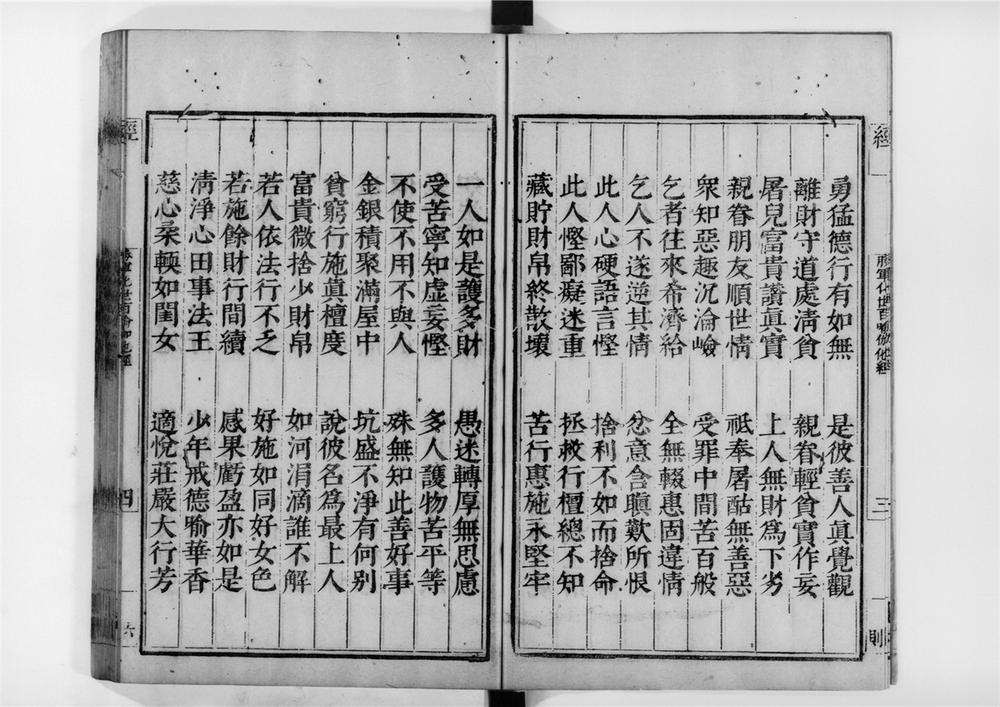 勇猛德行有如無 是彼善人眞覺觀
離財守道處淸貧 親眷輕貧實作妄
屠兒富貴讚眞實 上人無財爲下劣
親眷朋友順世情 祗奉屠酤無善惡
衆知惡趣沉淪嶮 受罪中間苦百般
乞者往來希濟給 全無輟惠固違情
乞人不遂逆其情 忿意含瞋歎所恨
此人心硬語言慳 捨利不如而捨命
此人慳鄙癡迷重 拯救行檀總不知
藏貯財帛終散壞 苦行惠施永堅牢
一人如是護多財 愚迷轉厚無思慮
受苦寧知虛妄慳 多人護物苦平等
不使不用不與人 殊無知此善好事
金銀積聚滿屋中 坑盛不淨有何别
貧窮行施眞檀度 說彼名爲最上人
富貴微捨少財帛 如河涓滴誰不解
若人依法行不乏 好施如同好女色
若施餘財行間續 感果虧盈亦如是
淸淨心田事法王 少年戒德喻華香
慈心柔輭如閨女 適悅莊嚴大行芳
經
勝軍化世百喻伽他經
三
則
經
四
六